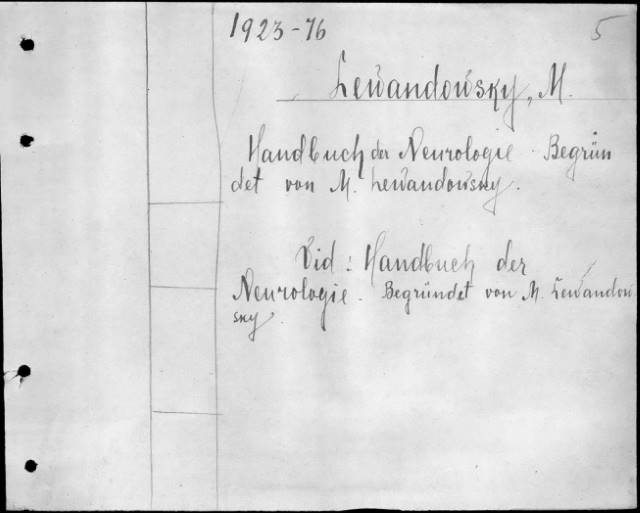 1923-76
5
Lewandowsky, M.
Handbuch der Neurologie. Begrün
det von M. Lewandowsky.
Vid: Handbuch der
Neurologie. Begründet von M. Lewandow
sky.